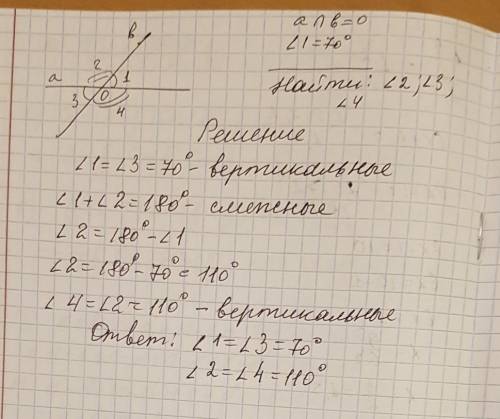 a ∩ b = O
∠1 = 70°
Найти: ∠2; ∠3;
∠4
b
a 2 1
3 O 4
Решение
∠1 = ∠3 = 70° - вертикальные
∠1 + ∠2 = 180° - смежные
∠2 = 180° - ∠1
∠2 = 180° - 70° = 110°
∠4 = ∠2 = 110° - вертикальные
Ответ: ∠1 = ∠3 = 70°
∠2 = ∠4 = 110°